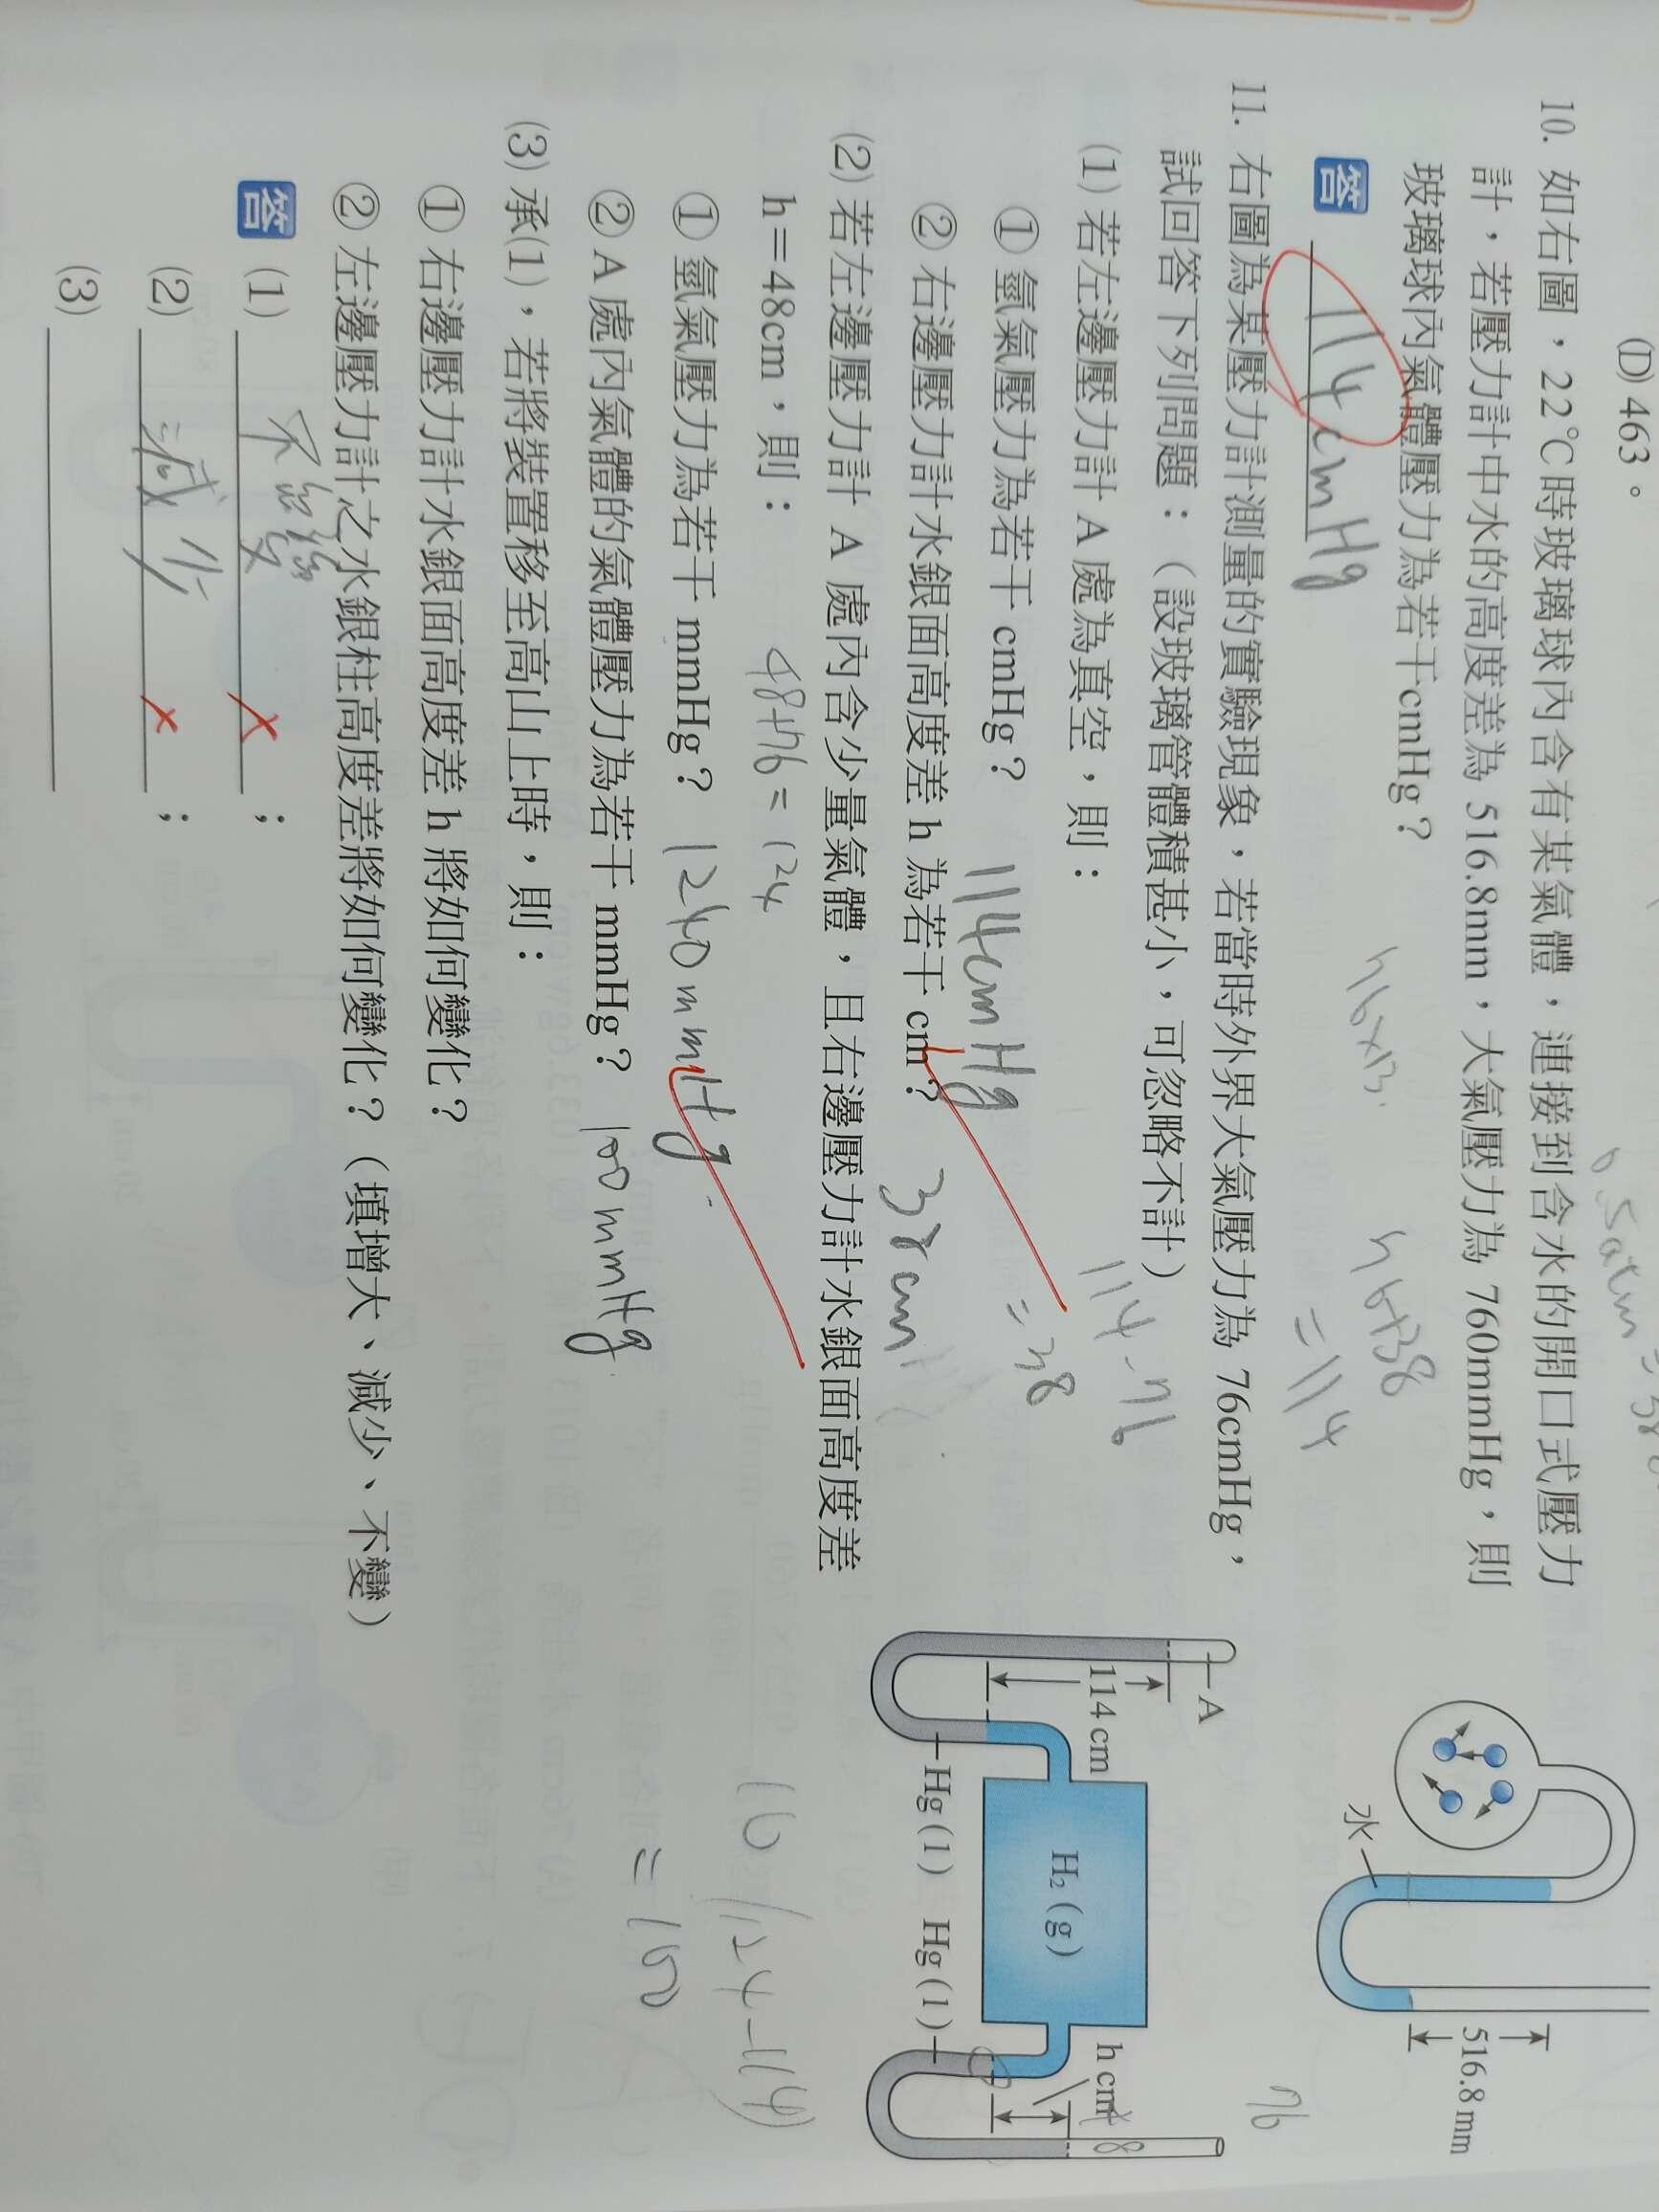 (D) 463。
10. 如右圖，22℃時玻璃球內含有某氣體，連接到含水的開口式壓力
計，若壓力計中水的高度差為 516.8mm，大氣壓力為 760mmHg，則
玻璃球內氣體壓力為若干cmHg？
76+38
=114
答 114cmHg
水
516.8 mm
76
11. 右圖為某壓力計測量的實驗現象，若當時外界大氣壓力為 76cmHg，
試回答下列問題：（設玻璃管體積甚小，可忽略不計）
(1) 若左邊壓力計 A 處為真空，則：
114-76
=38
① 氫氣壓力為若干 cmHg？ 114cmHg
② 右邊壓力計水銀面高度差 h 為若干 cm？ 38cm
(2) 若左邊壓力計 A 處內含少量氣體，且右邊壓力計水銀面高度差
h=48cm，則： 48+76=124
① 氫氣壓力為若干 mmHg？ 1240mmHg
② A 處內氣體的氣體壓力為若干 mmHg？ 100mmHg
(3) 承(1)，若將裝置移至高山上時，則：
① 右邊壓力計水銀面高度差 h 將如何變化？
② 左邊壓力計之水銀柱高度差將如何變化？（填增大、減少、不變）
答 (1) ；
(2) 減少 ；
(3)
A
114 cm
H₂ (g)
h cm
Hg (l)
Hg (l)
10 (124-114)
=100